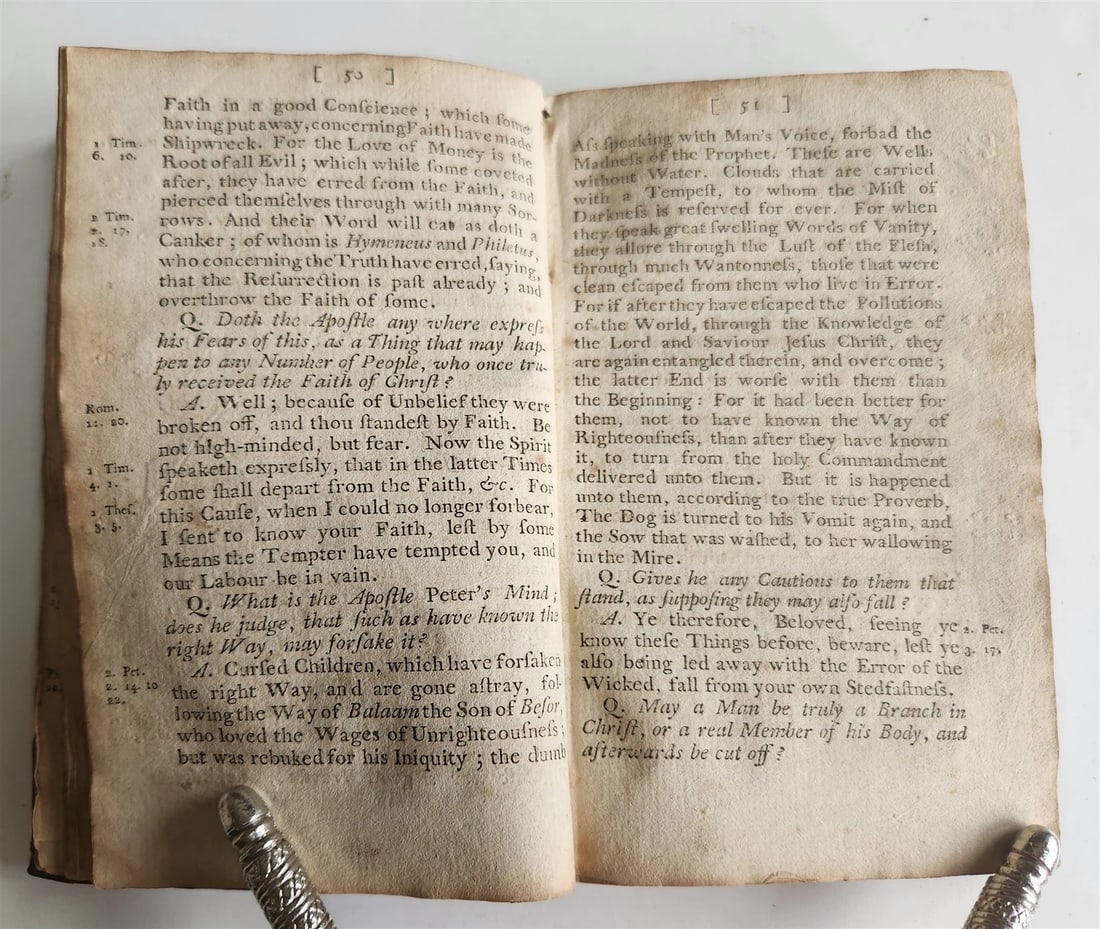 [ 50 ]
Faith in a good Conſcience ; which ſome
having put away, concerning Faith have made
1 Tim. Shipwreck. For the Love of Money is the
6. 10. Root of all Evil ; which while ſome coveted
after, they have erred from the Faith, and
pierced themſelves through with many Sor-
2 Tim. rows. And their Word will eat as doth a
2. 17, Canker ; of whom is Hymeneus and Philetus,
18. who concerning the Truth have erred, ſaying,
that the Reſurrection is paſt already ; and
overthrow the Faith of ſome.
Q. Doth the Apoſtle any where expreſs
his Fears of this, as a Thing that may hap-
pen to any Number of People, who once tru-
ly received the Faith of Chriſt ?
Rom. A. Well ; becauſe of Unbelief they were
11. 20. broken off, and thou ſtandeſt by Faith. Be
not high-minded, but fear. Now the Spirit
1 Tim. ſpeaketh expreſsly, that in the latter Times
4. 1. ſome ſhall depart from the Faith, &c. For
1 Theſ. this Cauſe, when I could no longer forbear,
3. 5. I ſent to know your Faith, leſt by ſome
Means the Tempter have tempted you, and
our Labour be in vain.
Q. What is the Apoſtle Peter's Mind ;
does he judge, that ſuch as have known the
right Way, may forſake it?
2. Pet. A. Curſed Children, which have forſaken
2. 14. to the right Way, and are gone aſtray, fol-
22. lowing the Way of Balaam the Son of Beſor,
who loved the Wages of Unrighteouſneſs ;
but was rebuked for his Iniquity ; the dumb
[ 51 ]
Aſs ſpeaking with Man's Voice, forbad the
Madneſs of the Prophet. Theſe are Wells
without Water. Clouds that are carried
with a Tempeſt, to whom the Miſt of
Darkneſs is reſerved for ever. For when
they ſpeak great ſwelling Words of Vanity,
they allure through the Luſt of the Fleſh,
through much Wantonneſs, thoſe that were
clean eſcaped from them who live in Error.
For if after they have eſcaped the Pollutions
of the World, through the Knowledge of
the Lord and Saviour Jeſus Chriſt, they
are again entangled therein, and overcome ;
the latter End is worſe with them than
the Beginning : For it had been better for
them, not to have known the Way of
Righteouſneſs, than after they have known
it, to turn from the holy Commandment
delivered unto them. But it is happened
unto them, according to the true Proverb,
The Dog is turned to his Vomit again, and
the Sow that was waſhed, to her wallowing
in the Mire.
Q. Gives he any Cautions to them that
ſtand, as ſuppoſing they may alſo fall ?
A. Ye therefore, Beloved, ſeeing ye 2. Pet.
know theſe Things before, beware, leſt ye 3. 17.
alſo being led away with the Error of the
Wicked, fall from your own Stedfaſtneſs.
Q. May a Man be truly a Branch in
Chriſt, or a real Member of his Body, and
afterwards be cut off ?